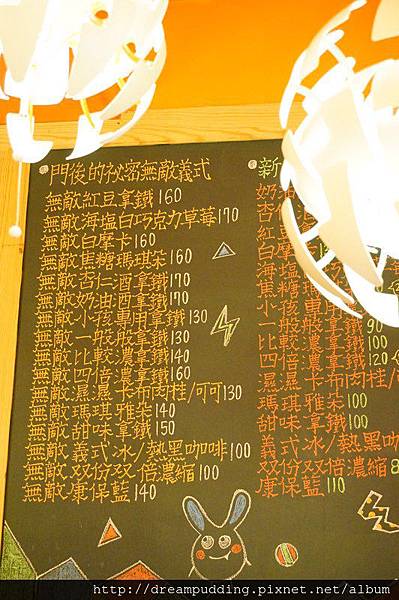 門後的祕密無敵義式
無敵紅豆拿鐵160
無敵海塩白巧克力草莓170
無敵白摩卡160
無敵焦糖瑪琪朵160
無敵杏仁酒拿鐵170
無敵奶油酒拿鐵170
無敵小孩專用拿鐵130
無敵一般般拿鐵130
無敵比較濃拿鐵140
無敵四倍濃拿鐵160
無敵濕濕卡布肉桂/可可130
無敵瑪琪雅朵140
無敵甜味拿鐵150
無敵義式冰/熱黑咖啡100
無敵双份双倍濃縮100
無敵康保藍140
新
奶油
杏仁
紅
白摩
海塩
焦糖
小孩專用
一般般拿鐵90
比較濃拿鐵100
四倍濃拿鐵120
濕濕卡布肉桂/
瑪琪雅朵100
甜味拿鐵100
義式冰/熱黑
双份双倍濃縮8
康保藍110
http://dreampudding.pixnet.net/album